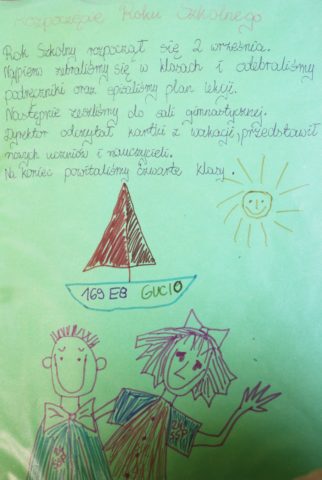 Rozpoczęcie Roku Szkolnego
Rok Szkolny rozpoczął się 2 września.
Najpierw zebraliśmy się w klasach i odebraliśmy
podręczniki oraz spisaliśmy plan lekcji.
Następnie zeszliśmy do sali gimnastycznej.
Dyrektor odczytał kartki z wakacji, przedstawił
nowych uczniów i nauczycieli.
Na koniec powitaliśmy czwarte klasy.
169 EB GUCIO